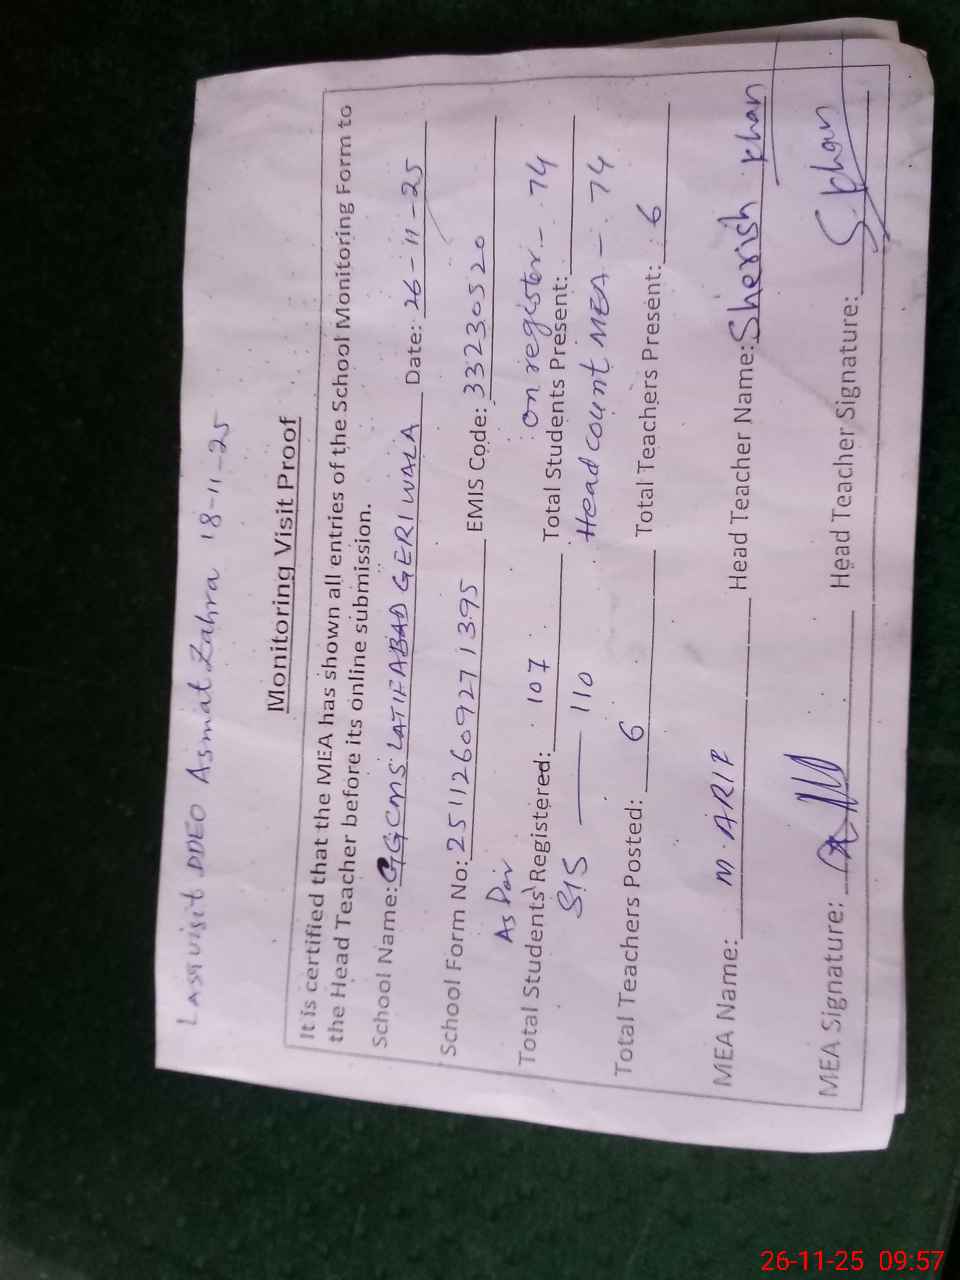 Last visit DDEO Asmat Zahra 18-11-25
Monitoring Visit Proof
It is certified that the MEA has shown all entries of the School Monitoring Form to
the Head Teacher before its online submission.
School Name: GGCMS LATIFABAD GERI WALA Date: 26-11-25
School Form No: 25112609271395 EMIS Code: 33230520
As Par on register - 74
Total Students Registered: 107 Total Students Present:
SIS — 110 Head count MEA - 74
Total Teachers Posted: 6 Total Teachers Present: 6
MEA Name: M. ARIF Head Teacher Name: Sherish Khan
MEA Signature: Head Teacher Signature: S. Khan
26-11-25 09:57